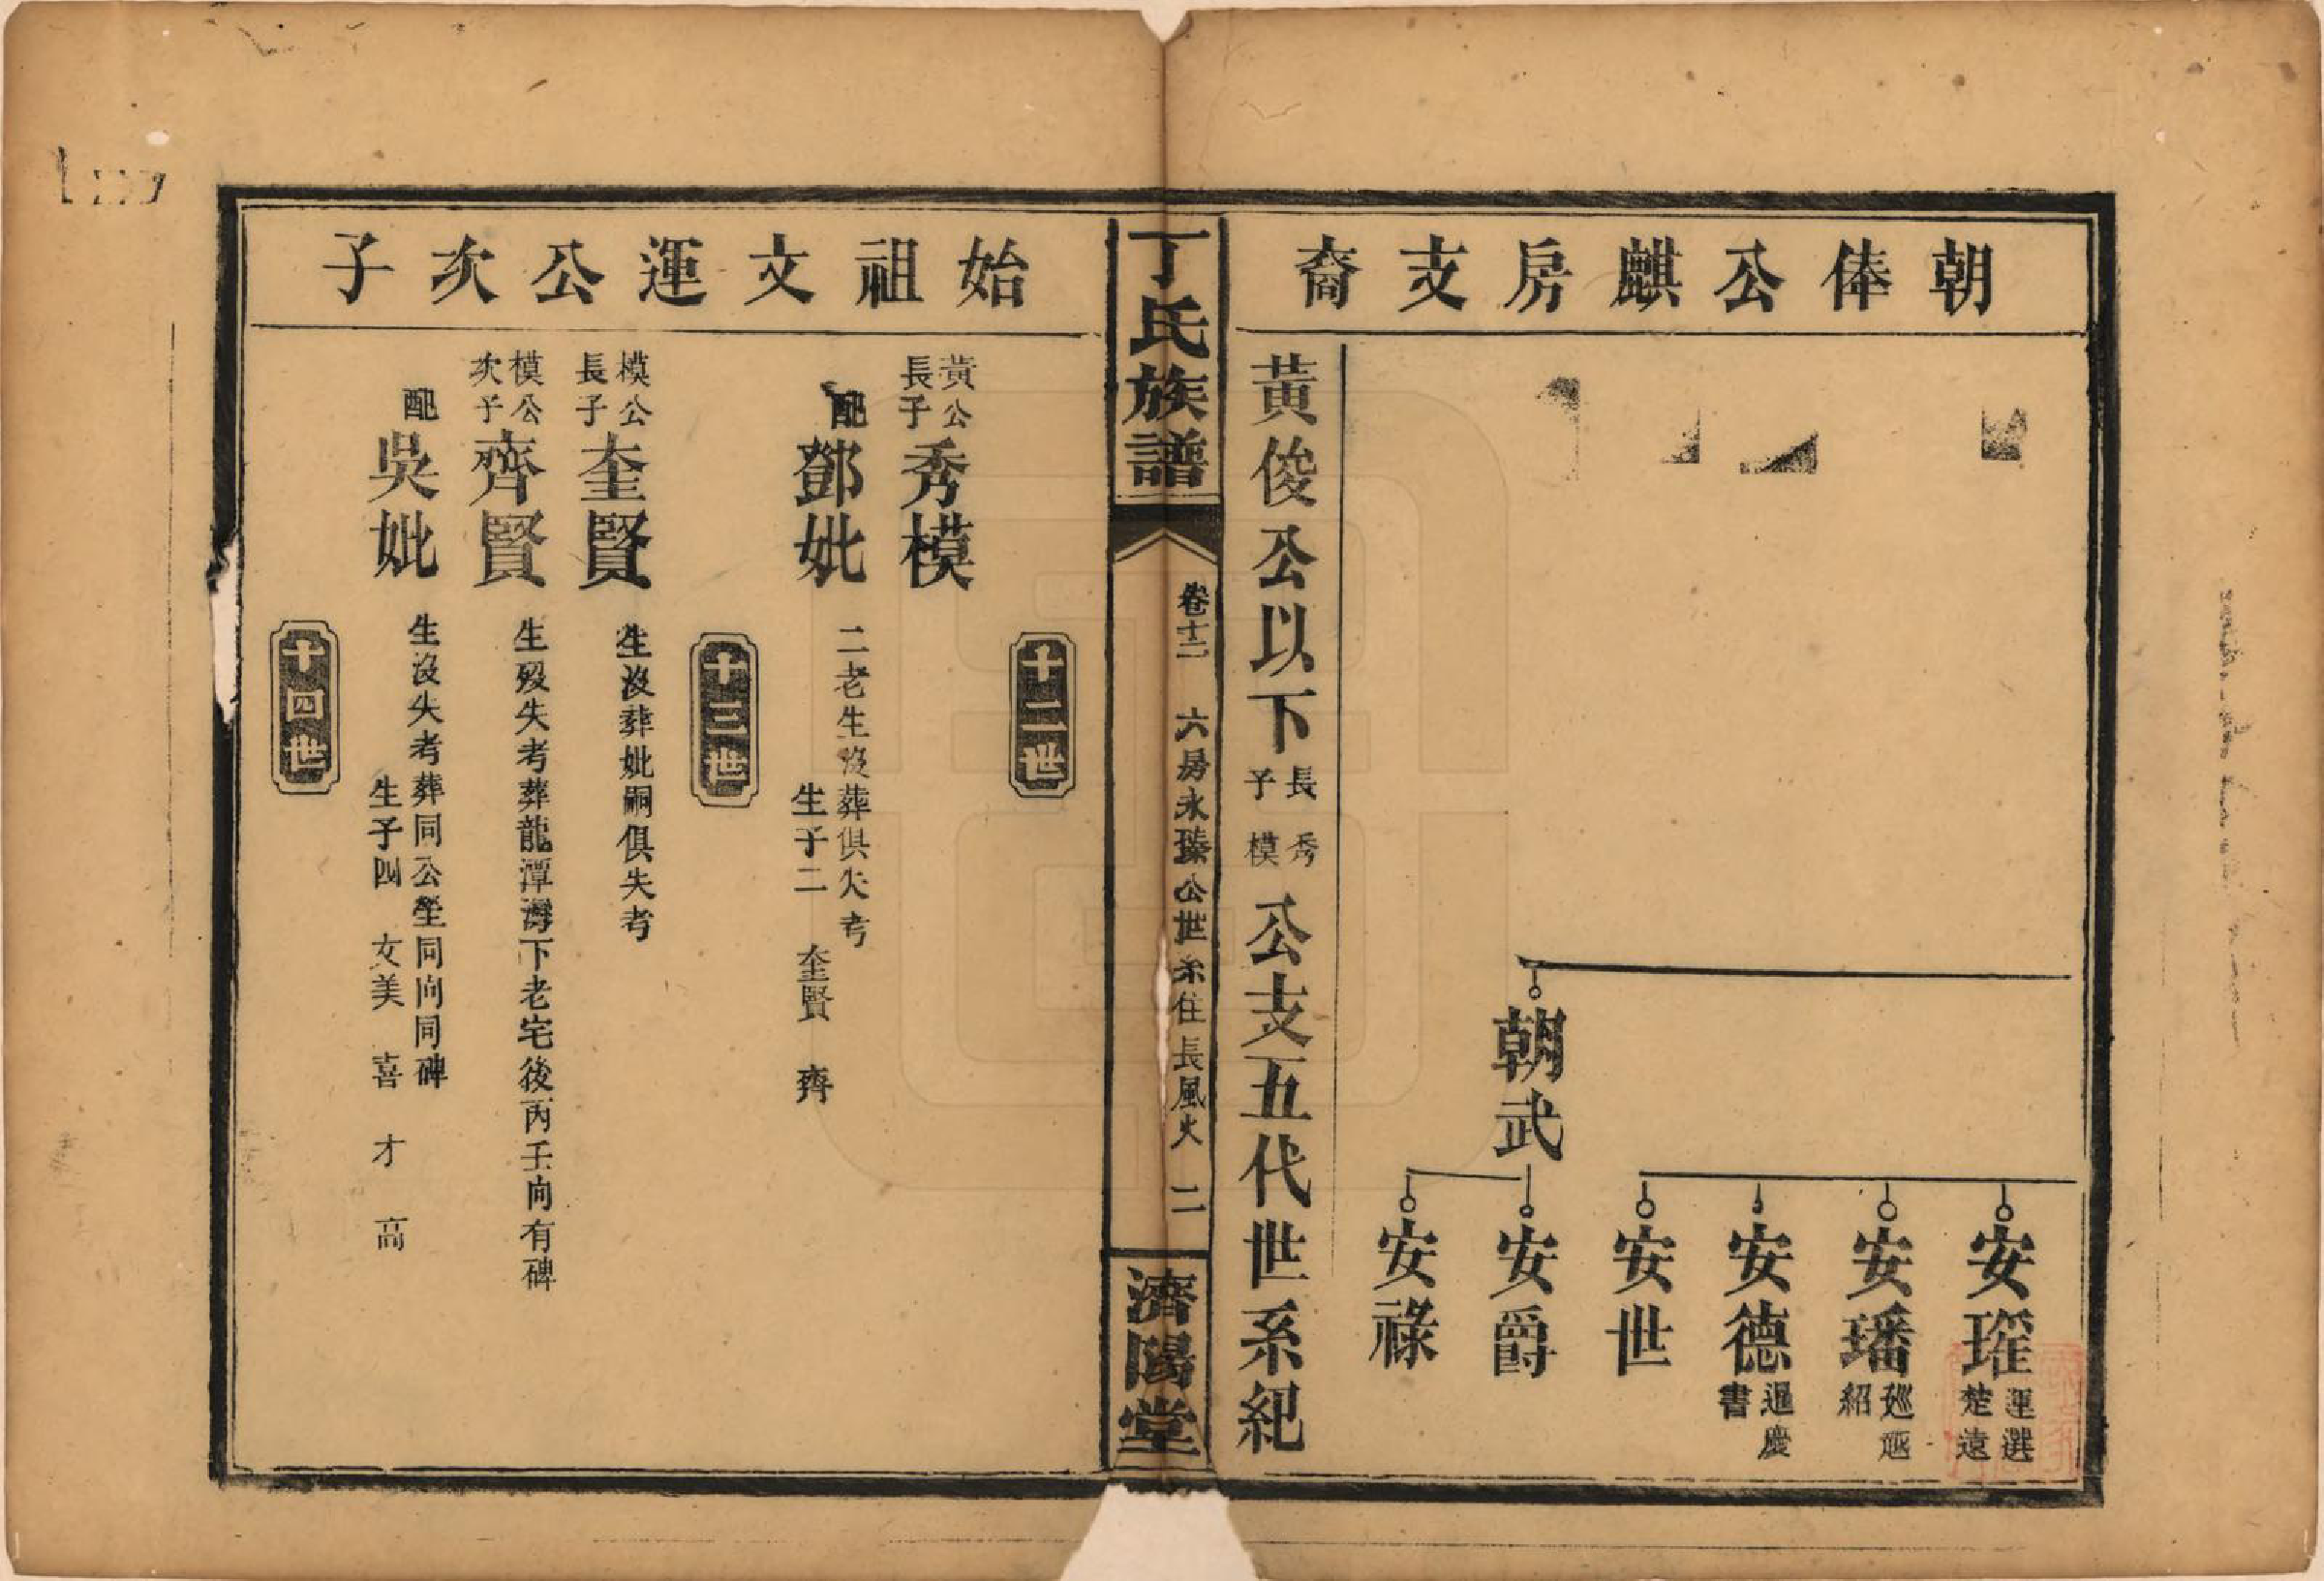 朝俸公麒房支裔
朝武
安瑾 運選楚遠
安璠 廵廵紹
安德 過慶書
安世
安爵
安祿
黃俊公以下長子秀模公支五代世系紀
丁氏族譜
卷十二 六房永臻公世系住長風火 二
濟陽堂
始祖文運公次子
十二世
黃公長子秀模
配鄧妣 二老生沒葬俱失考
生子二 奎賢 齊
十三世
模公長子奎賢 生沒葬妣嗣俱失考
模公次子齊賢 生歿失考葬龍潭灣下老宅後丙壬向有碑
配吳妣 生沒失考葬同公塋同向同碑
生子四 文美 喜 才 高
十四世